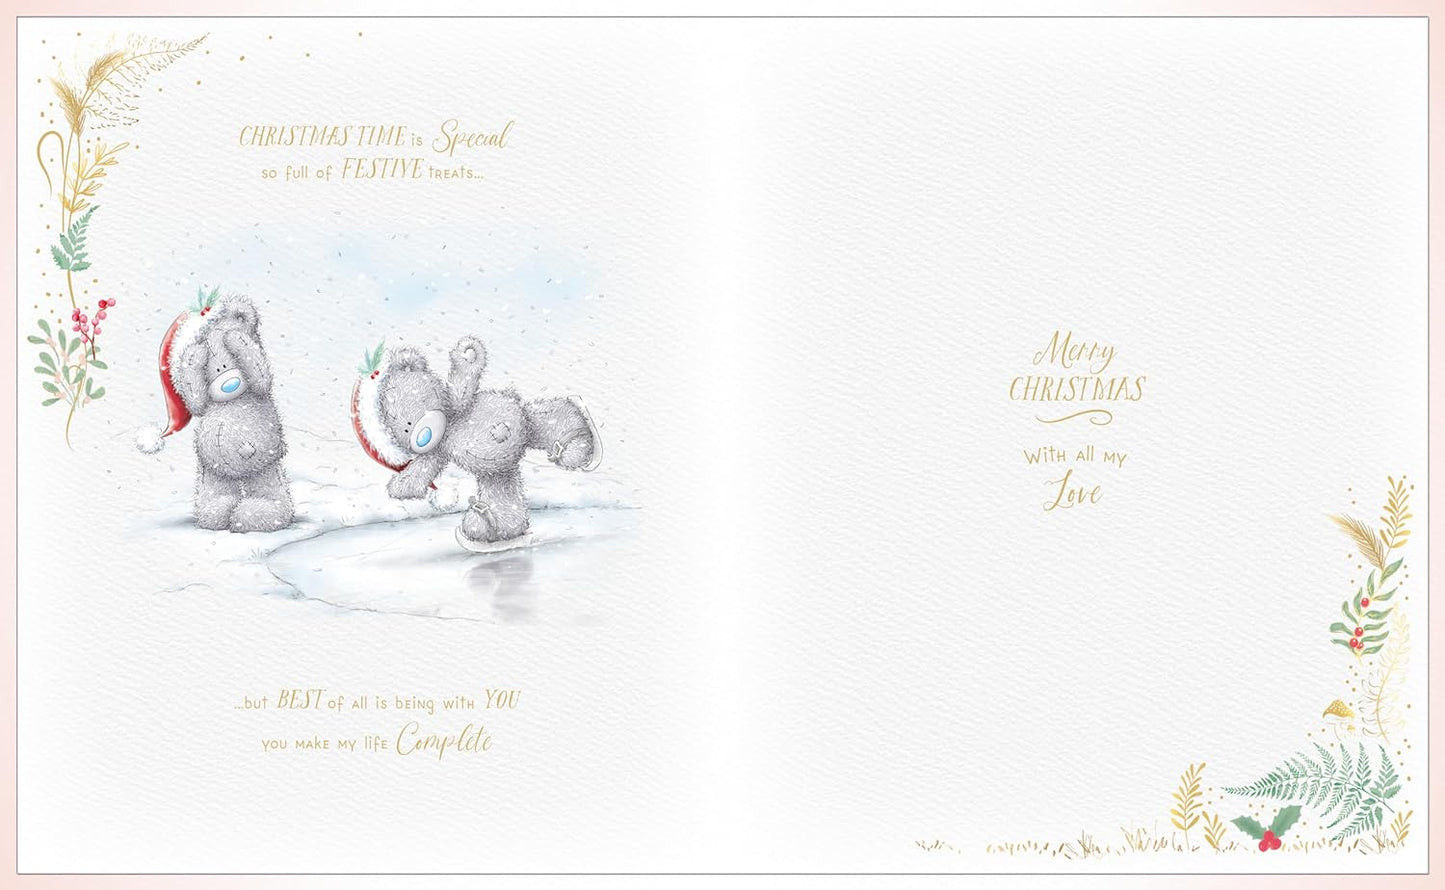 CHRISTMAS TIME is Special
so full of FESTIVE treats...
...but BEST of all is being with YOU
you make my life Complete
Merry
CHRISTMAS
With all my
Love